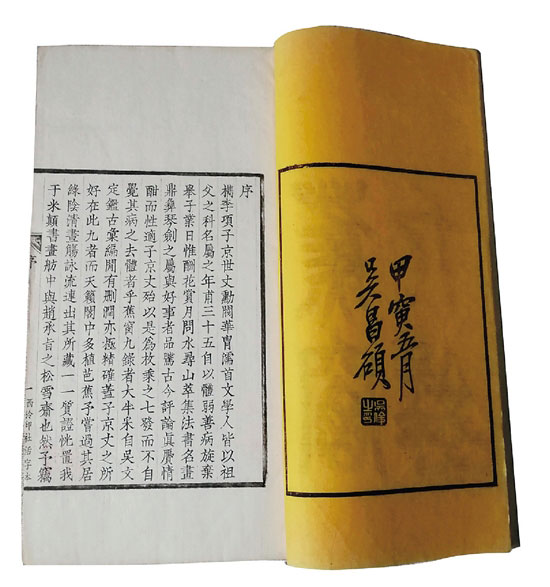 甲寅五月
吳昌碩
序
檇李項子京世丈勳閥華冑濡首文學人皆以祖
父之科名屬之年甫三十五自以體弱善病旋棄
舉子業日惟酬花賞月問水尋山萃集法書名畫
鼎彝琴劍之屬與好事者品騭古今評論眞贋情
酣而性適子京丈殆以是爲枚乘之七發而不自
覺其病之去體者乎蕉窗九錄者大半采自吳文
定鑑古彙編閒有刪潤亦極精確蓋子京丈之所
好在此九者而天籟閣中多植芭蕉予嘗過其居
綠陰清晝觴詠流連出其所藏一一質證恍置我
于米顛書畫舫中與趙承旨之松雪齋也然予竊
序
一
西泠印社活字本